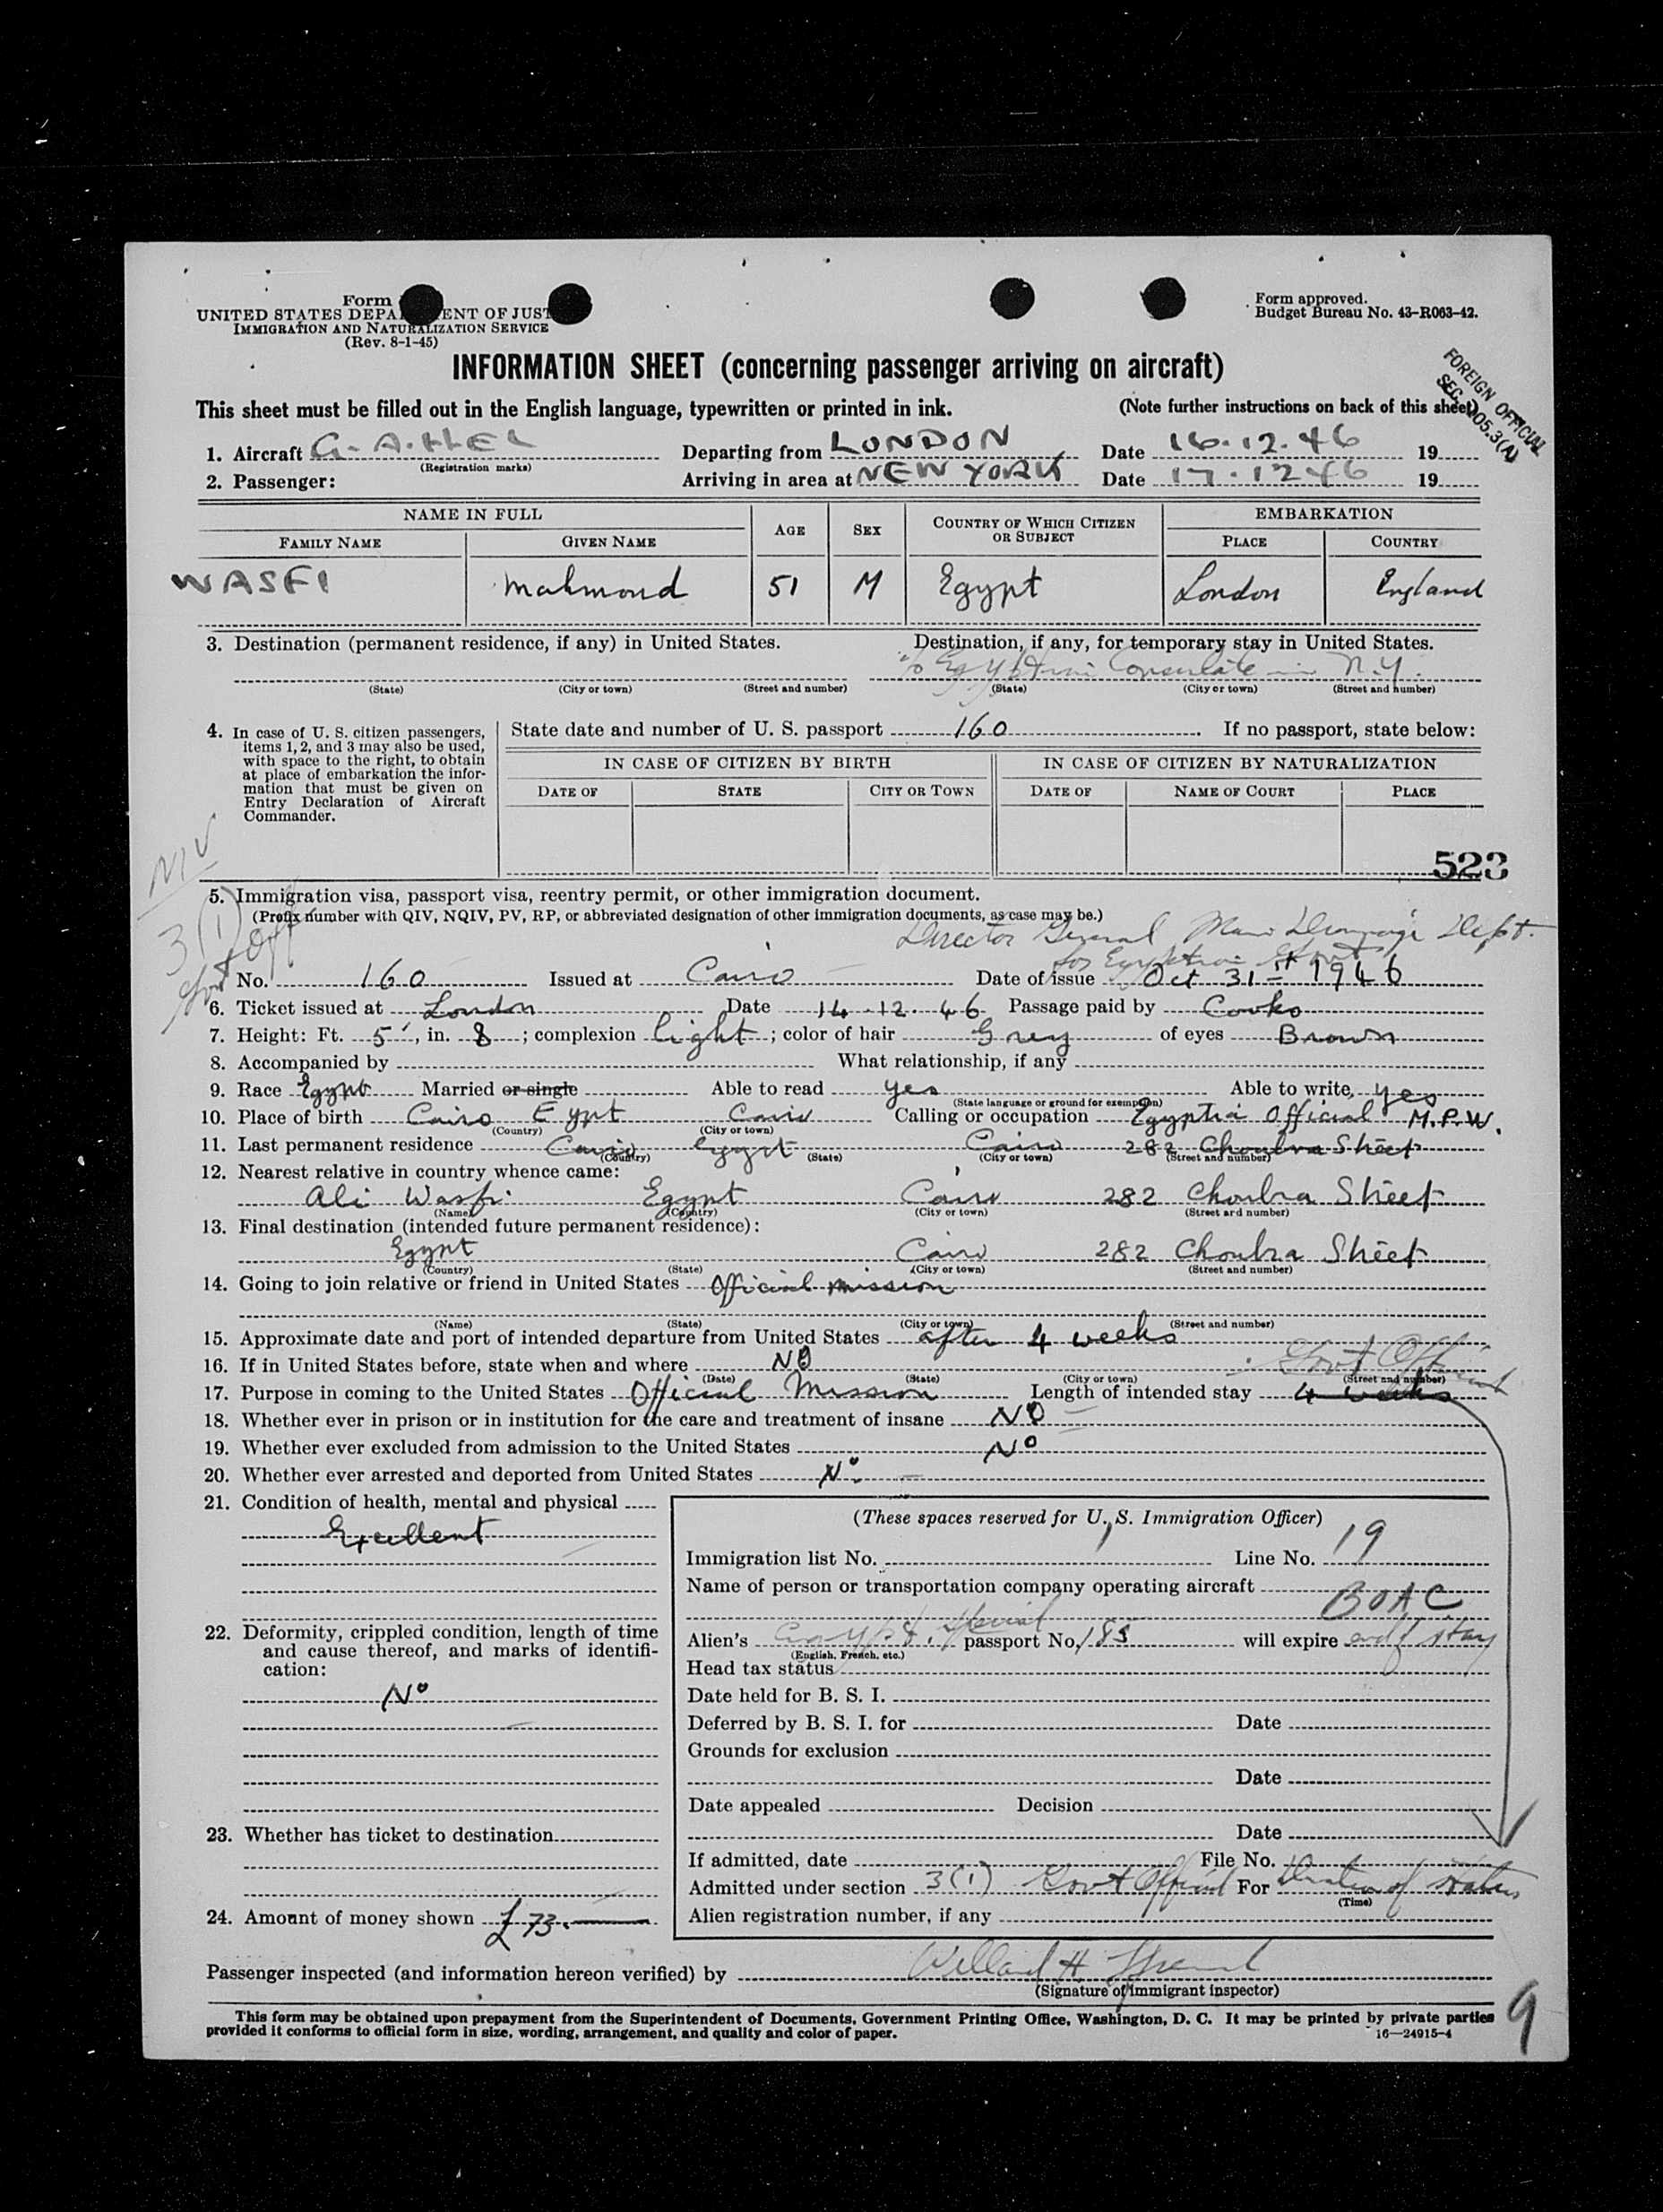 Form
UNITED STATES DEPA ENT OF JUST
IMMIGRATION AND NATURALIZATION SERVICE
(Rev. 8-1-45)
Form approved.
Budget Bureau No. 43-R063-42.
INFORMATION SHEET (concerning passenger arriving on aircraft)
FOREIGN OFFICIAL
SEC. 105.3(A)
This sheet must be filled out in the English language, typewritten or printed in ink. (Note further instructions on back of this sheet)
1. Aircraft G-A.HEL Departing from LONDON Date 16.12.46 19
(Registration marks)
2. Passenger: Arriving in area at NEW YORK Date 17.12.46 19
NAME IN FULL AGE SEX COUNTRY OF WHICH CITIZEN OR SUBJECT EMBARKATION
FAMILY NAME GIVEN NAME PLACE COUNTRY
WASFI Mahmoud 51 M Egypt London England
3. Destination (permanent residence, if any) in United States. Destination, if any, for temporary stay in United States.
c/o Egyptian Consulate in N.Y.
(State) (City or town) (Street and number) (State) (City or town) (Street and number)
4. In case of U. S. citizen passengers, items 1, 2, and 3 may also be used, with space to the right, to obtain at place of embarkation the information that must be given on Entry Declaration of Aircraft Commander.
State date and number of U. S. passport 160 If no passport, state below:
IN CASE OF CITIZEN BY BIRTH IN CASE OF CITIZEN BY NATURALIZATION
DATE OF STATE CITY OR TOWN DATE OF NAME OF COURT PLACE
523
NIV
3(1)
Govt Off
5. Immigration visa, passport visa, reentry permit, or other immigration document.
(Prefix number with QIV, NQIV, PV, RP, or abbreviated designation of other immigration documents, as case may be.)
Director General Main Drainage Dept.
for Egyptian Govt
No. 160 Issued at Cairo Date of issue Oct 31st 1946
6. Ticket issued at London Date 14.12.46 Passage paid by Cooks
7. Height: Ft. 5', in. 8; complexion light; color of hair Grey of eyes Brown
8. Accompanied by What relationship, if any
9. Race Egypt Married or single Able to read yes Able to write yes
(State language or ground for exemption)
10. Place of birth Cairo Eypt Cairo Calling or occupation Egyptia Official M.P.W.
(Country) (City or town)
11. Last permanent residence Cairo Egypt Cairo 282 Choubra Street
(Country) (State) (City or town) (Street and number)
12. Nearest relative in country whence came:
Ali Wasfi Egypt Cairo 282 Choubra Street
(Name) (Country) (City or town) (Street and number)
13. Final destination (intended future permanent residence):
Egypt Cairo 282 Choubra Street
(Country) (State) (City or town) (Street and number)
14. Going to join relative or friend in United States Official mission
(Name) (State) (City or town) (Street and number)
15. Approximate date and port of intended departure from United States after 4 weeks
16. If in United States before, state when and where NO
(Date) (State) (City or town) (Street and number)
Govt Official
17. Purpose in coming to the United States Official Mission Length of intended stay 4 weeks
18. Whether ever in prison or in institution for the care and treatment of insane NO
19. Whether ever excluded from admission to the United States No
20. Whether ever arrested and deported from United States No
21. Condition of health, mental and physical
Excellent
22. Deformity, crippled condition, length of time and cause thereof, and marks of identification:
No
23. Whether has ticket to destination
24. Amount of money shown £73.
(These spaces reserved for U. S. Immigration Officer)
Immigration list No. Line No. 19
Name of person or transportation company operating aircraft
BOAC
Alien's Egypt. special passport No. 185 will expire end of stay
(English, French, etc.)
Head tax status
Date held for B. S. I.
Deferred by B. S. I. for Date
Grounds for exclusion
Date
Date appealed Decision
Date
If admitted, date File No.
Admitted under section 3(1) Govt Official For Duration of Status
(Time)
Alien registration number, if any
Passenger inspected (and information hereon verified) by Willard H.
(Signature of immigrant inspector)
This form may be obtained upon prepayment from the Superintendent of Documents, Government Printing Office, Washington, D. C. It may be printed by private parties
provided it conforms to official form in size, wording, arrangement, and quality and color of paper. 16—24915-4
9